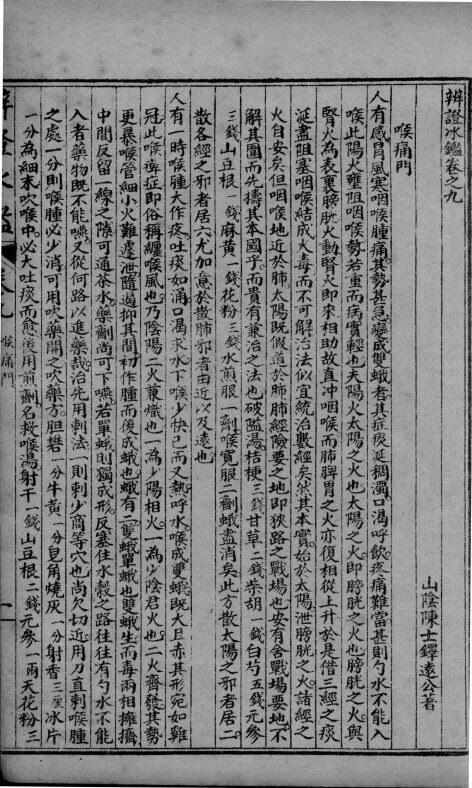 辨證冰鑑卷之九
山陰陳士鐸遠公著
喉痛門
人有感冒風寒咽喉腫痛其勢甚急變成雙蛾者其症痰延稠濁口渴呼飲疼痛難當甚則勺水不能入
喉此陽火壅阻咽喉勢若重而病實輕也夫陽火太陽之火也太陽之火即膀胱之火也膀胱之火與
腎火為表裏膀胱火動腎火即來相助故直冲咽喉而肺脾胃之火亦復相從上升於是借三經之痰
涎盡阻塞咽喉結成火毒而不可解治法似宜統治數經矣然其本實始於太陽泄膀胱之火諸經之
火自安矣但咽喉地近於肺太陽既假道於肺肺經險要之地即狹路之戰場也安有舍戰場要地不
解其圍而先擣其本國乎而貴有兼治之法也破隘湯桔梗三錢甘草二錢柴胡一錢白芍五錢元參
三錢山豆根一錢麻黃一錢花粉三錢水煎服一劑喉寬服二劑蛾盡消矣此方散太陽之邪者居二
散各經之邪者居六尤加意於散肺邪者由近以及遠也
人有一時喉腫大作疼吐痰如涌口渴求水下喉少快已而又熱呼水喉成雙蛾既大且赤其形宛如雞
冠此喉痺症即俗稱纏喉風也乃陰陽二火兼熾也一為少陽相火一為少陰君火也二火齊發其勢
更暴喉管細小火難遽泄隨遏抑其間初作腫而後成蛾也蛾有二雙蛾單蛾也雙蛾生而毒兩相擁擠
中間反留一線之隙可通茶水藥劑尚可下嚥若單蛾則獨成形反塞住水穀之路往往有勺水不能
入者藥物既不能嚥又從何路以進藥哉治先用刺法一則刺少商等穴也尚欠切近用刀直刺喉腫
之處一分則喉腫必少消可用吹藥開之吹藥方胆礬一分牛黃一分皂角燒灰一分射香三厘冰片
一分為細末吹喉中必大吐痰而愈後用煎劑名救喉湯射干一錢山豆根二錢元參一兩天花粉三
喉痛門
一